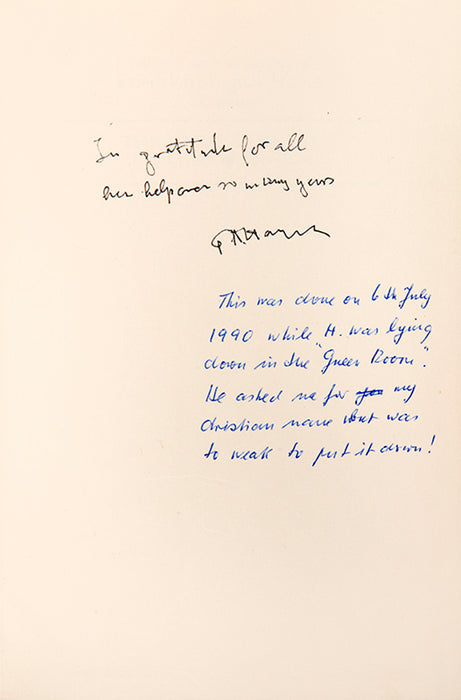 In gratitude for all
her help over so many years
F A Hayek
This was done on 6th July
1990 while H. was lying
down in the "Green Room".
He asked me for you my
christian name but was
to weak to put it down!